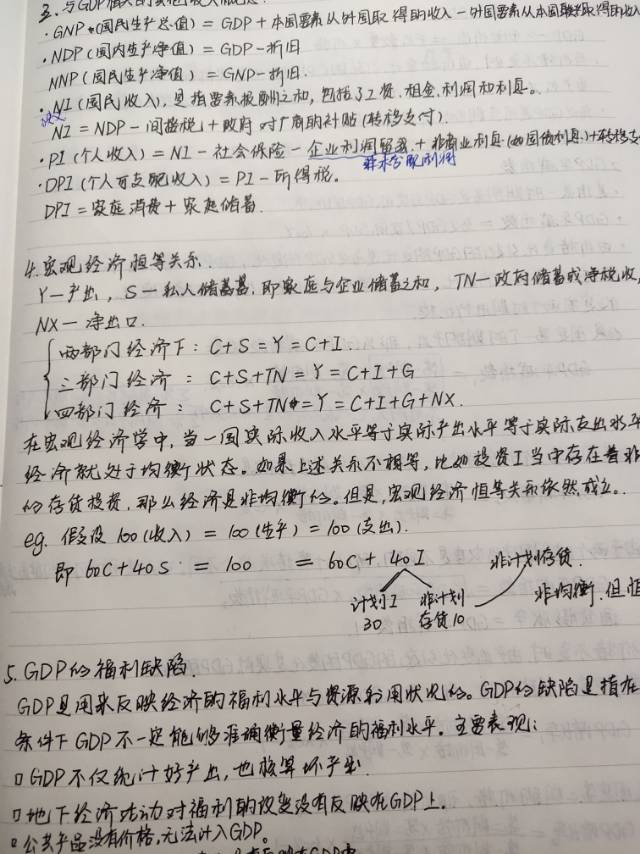 3. 与GDP相关的其他收入概念.
· GNP (国民生产总值) = GDP + 本国要素从外国取得的收入 - 外国要素从本国取得的收入
· NDP (国内生产净值) = GDP - 折旧
NNP (国民生产净值) = GNP - 折旧.
· NI (国民收入), 是指要素报酬之和, 包括了工资、租金、利润和利息。
狭义
NI = NDP - 间接税 + 政府对厂商的补贴 (转移支付).
· PI (个人收入) = NI - 社会保险 - 企业利润留存 + 非商业利息 (如国债利息) + 转移支
并未分配利润
· DPI (个人可支配收入) = PI - 所得税.
DPI = 家庭消费 + 家庭储蓄.
4. 宏观经济恒等关系.
Y—产出, S—私人储蓄, 即家庭与企业储蓄之和, TN—政府储蓄或净税收,
NX—净出口.
两部门经济下: C+S = Y = C+I.
三部门经济 : C+S+TN = Y = C+I+G
四部门经济 : C+S+TN = Y = C+I+G+NX.
在宏观经济学中, 当一国实际收入水平等于实际产出水平等于实际支出水平
经济就处于均衡状态。如果上述关系不相等, 比如投资I当中存在着非
的存货投资, 那么经济是非均衡的. 但是, 宏观经济恒等关系依然成立.
eg. 假设 100 (收入) = 100 (生产) = 100 (支出).
即 60C + 40S = 100 = 60C + 40I 非计划存货.
计划I 非计划 非均衡. 但恒
30 存货10
5. GDP的福利缺陷.
GDP是用来反映经济的福利水平与资源利用状况的。GDP的缺陷是指在
条件下GDP不一定能够准确衡量经济的福利水平. 主要表现:
GDP不仅统计好产出, 也核算坏产出.
地下经济活动对福利的改变没有反映在GDP上.
公共产品没有价格, 无法计入GDP。